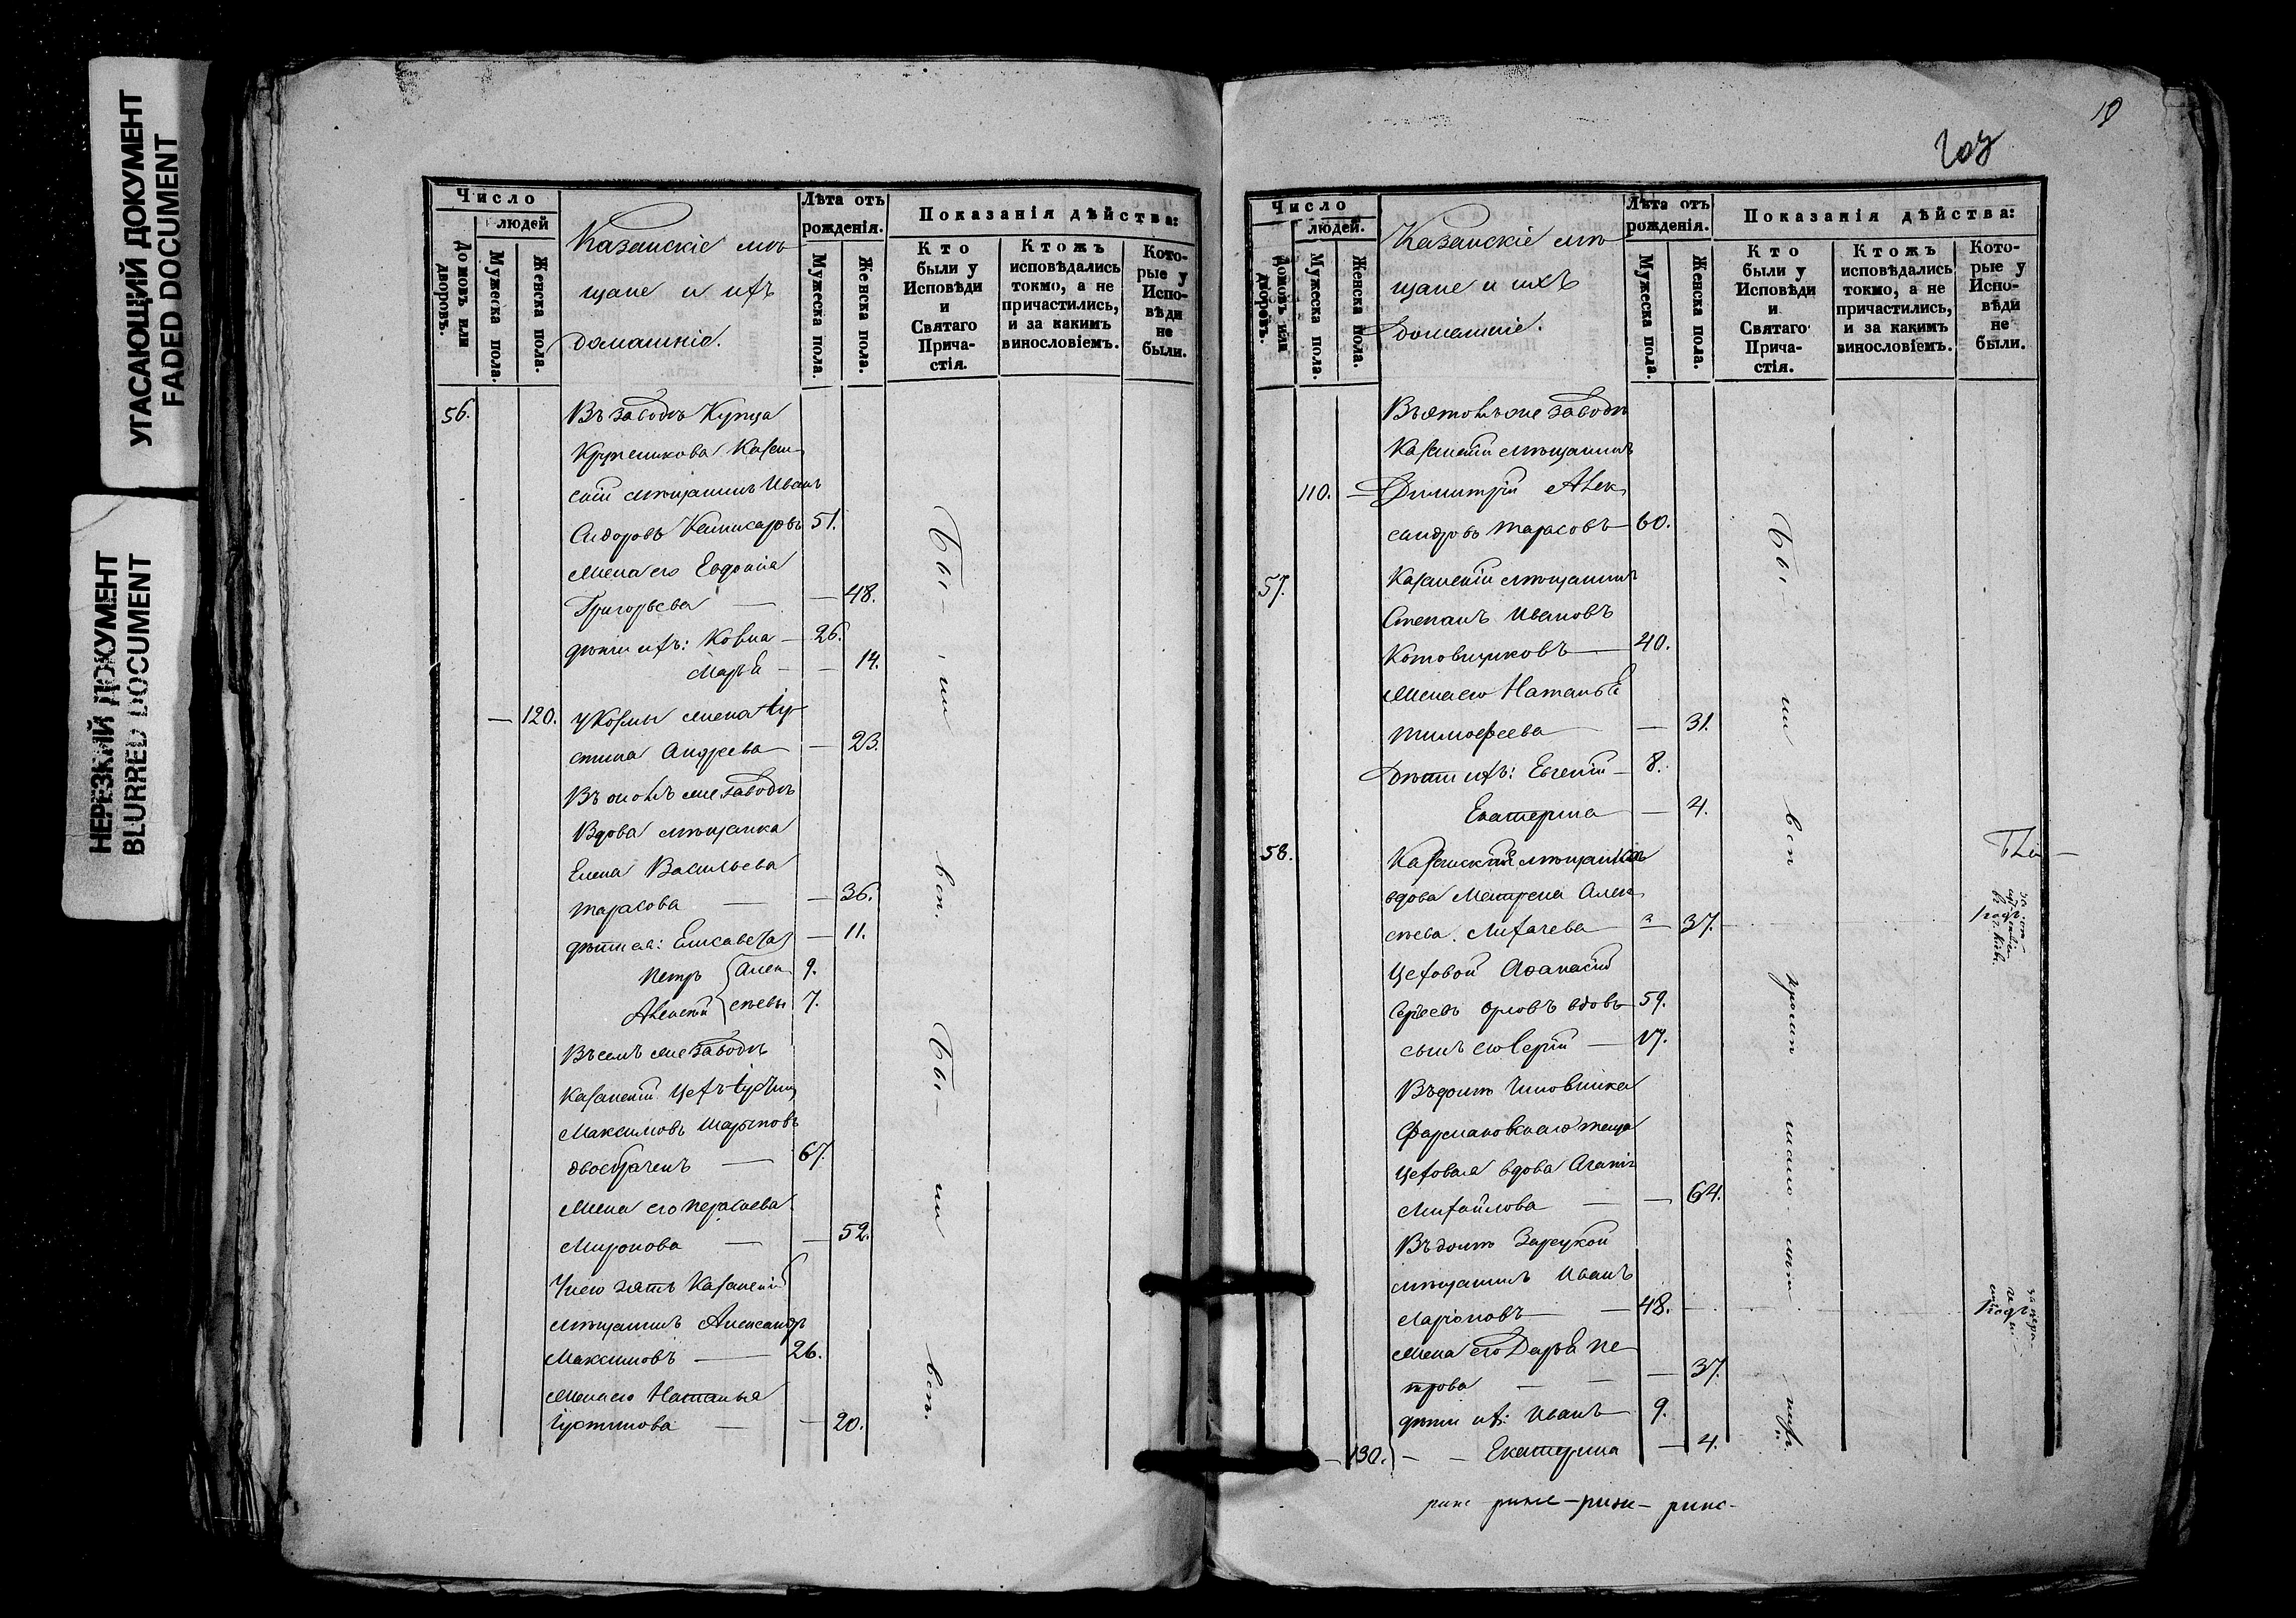 УГАСАЮЩИЙ ДОКУМЕНТ
FADED DOCUMENT
НЕРЕЗКИЙ ДОКУМЕНТ
BLURRED DOCUMENT
Число
людей
Домовъ или дворовъ.
Мужеска пола.
Женска пола.
Казанскіе мѣ
щане и ихъ
домашніе.
Лѣта отъ
рожденія.
Мужеска пола.
Женска пола.
Показанія дѣйства:
Кто
были у
Исповѣди
и
Святаго
Прича-
стія.
Ктожъ
исповѣдались
токмо, а не
причастились,
и за какимъ
винословіемъ.
Кото-
рые у
Испо-
вѣди
не
были.
56. Въ заводѣ Купца
Крупеникова Казан
скій мѣщанинъ Иванъ
Сидоровъ 51.
Жена его Евдокія
Григорьева — — 48.
дѣти ихъ: Козма — 26.
Марья — — 14.
— 120. У Козмы жена Іу
стина Андреева — 23.
Въ томъ же заводѣ
Вдова мѣщанка
Елена Васильева
Тарасова — — 36.
дѣти ея: Елисавета — 11.
Петръ Алек 9.
Алексѣй сѣевы 7.
Въ семъ же заводѣ
Казанскій цехъ Іустинъ
Максимовъ
двоебраченъ — 67.
Жена его Параскева
Миронова — — 52.
У него зять Казанскій
мѣщанинъ Александръ
Максимовъ — 26.
Жена его Наталья
Іустинова — — 20.
Бы- ли всѣ.
Бы- ли всѣ.
19
Число
людей.
Домовъ или дворовъ.
Мужеска пола.
Женска пола.
Казанскіе мѣ
щане и ихъ
Домашніе.
Лѣта отъ
рожденія.
Мужеска пола.
Женска пола.
Показанія дѣйства:
Кто
были у
Исповѣди
и
Святаго
Прича-
стія.
Ктожъ
исповѣдались
токмо, а не
причастились,
и за какимъ
винословіемъ.
Кото-
рые у
Испо-
вѣди
не
были.
Въ томъ же заводѣ
Казанскій мѣщанинъ
110. — Димитрій Алек
сандровъ Тарасовъ — 60.
57. Казанскій мѣщанинъ
Степанъ Ивановъ
Котовщиковъ — 40.
Жена его Наталья
Тимофеева — — 31.
Дѣти ихъ: Евгеній — 8.
Екатерина — — 4.
58. Казанская мѣщанка
вдова Матрена Алек
сѣева Лихачева — 37.
Цеховой Аѳанасій
Сергѣевъ Орловъ вдовъ 59.
сынъ его Сергій — 17.
Въ домѣ Чиновника
Фармаковскаго теща
Цеховая вдова Агапія
Михайлова — — 64.
Въ домѣ Зарецкой
мѣщанинъ Иванъ
Ларіоновъ — — 48.
Жена его Дарья Пе
трова — — — 37.
дѣти ихъ: Иванъ — 9.
— 130. — — Екатерина — 4.
Бы- ли всѣ